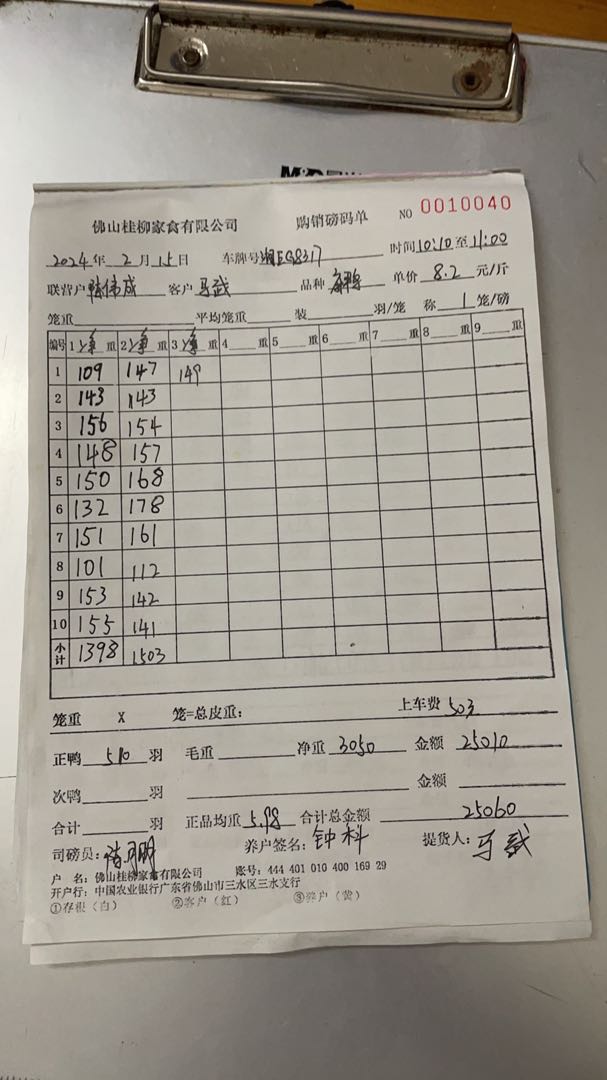 佛山桂柳家禽有限公司 购销磅码单 NO 0010040
2024年 2月 15日 车牌号 湘EG8317 时间 10:10 至 11:00
联营户 伟成 客户 马武 品种 单价 8.2 元/斤
笼重 平均笼重 装 羽/笼 称 1 笼/磅
编号 1 净 重 2 净 重 3 净 重 4 重 5 重 6 重 7 重 8 重 9 重
1 109 147 149
2 143 143
3 156 154
4 148 157
5 150 168
6 132 178
7 151 161
8 101 112
9 153 142
10 155 141
小计 1398 1503
笼重 X 笼=总皮重: 上车费 503
正鸭 510 羽 毛重 净重 3050 金额 25010
次鸭 羽 金额
合计 羽 正品均重 5.98 合计总金额 25060
司磅员: 养户签名: 钟科 提货人: 马武
户 名: 佛山桂柳家禽有限公司 账号: 444 401 010 400 169 29
开户行: 中国农业银行广东省佛山市三水区三水支行
①存根(白) ②客户(红) ③养户(黄)